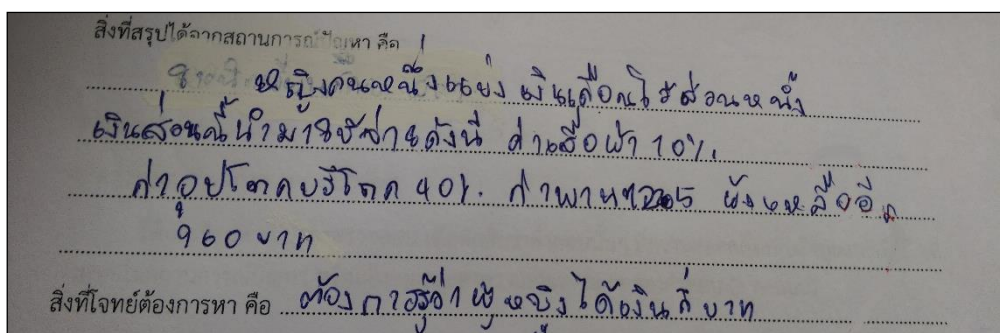 สิ่งที่สรุปได้จากสถานการณ์ปัญหา คือ
หญิงคนหนึ่งแบ่ง เงินเดือนไว้ส่วนหนึ่ง
เงินส่วนนี้นำมาใช้จ่ายดังนี้ ค่าเสื้อผ้า 10%.
ค่าอุปโภคบริโภค 40%. ค่าพาหนะ 5 ยังเหลืออีก
960 บาท
สิ่งที่โจทย์ต้องการหา คือ ต้องการรู้ว่า ผู้หญิงได้เงินกี่บาท